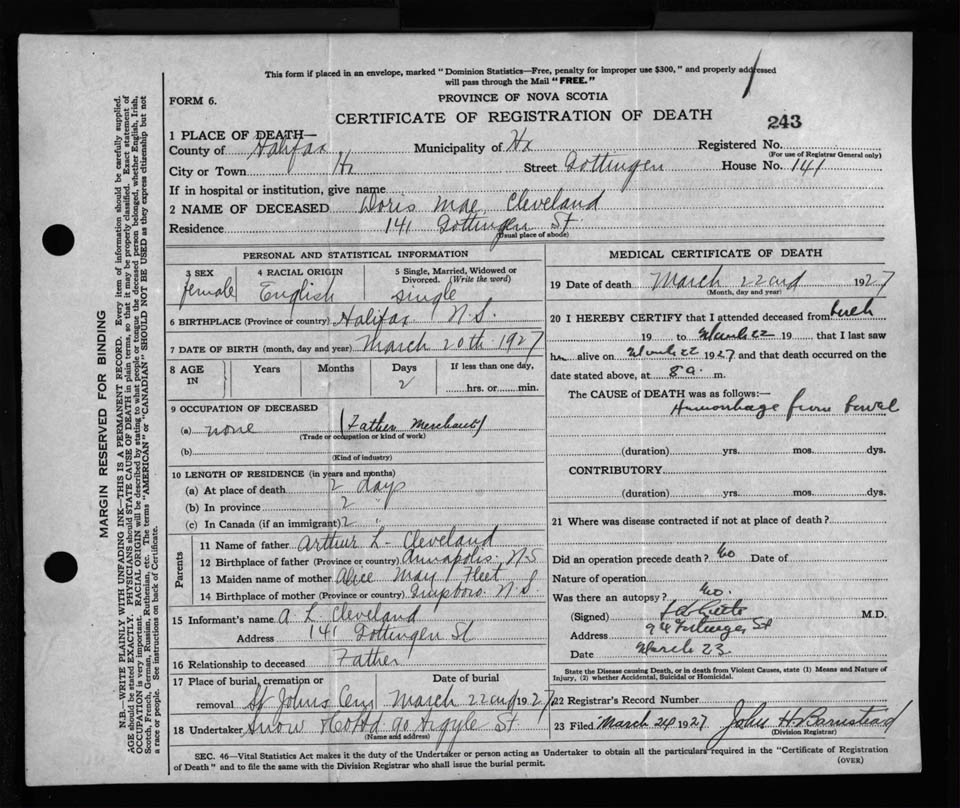 This form if placed in an envelope, marked "Dominion Statistics—Free, penalty for improper use $300," and properly addressed
will pass through the Mail "FREE."
FORM 6.
PROVINCE OF NOVA SCOTIA
CERTIFICATE OF REGISTRATION OF DEATH
243
1 PLACE OF DEATH—
County of Halifax Municipality of Hx Registered No.
(For use of Registrar General only)
City or Town Hx Street Gottingen House No. 141
If in hospital or institution, give name
2 NAME OF DECEASED Doris Mae Cleveland
Residence 141 Gottingen St
(Usual place of abode)
PERSONAL AND STATISTICAL INFORMATION
3 SEX 4 RACIAL ORIGIN 5 Single, Married, Widowed or
Divorced. (Write the word)
female English single
6 BIRTHPLACE (Province or country) Halifax N.S.
7 DATE OF BIRTH (month, day and year) March 20th 1927
8 AGE IN Years Months Days If less than one day,
2 hrs. or min.
9 OCCUPATION OF DECEASED
(a) none (Father Merchant)
(Trade or occupation or kind of work)
(b)
(Kind of industry)
10 LENGTH OF RESIDENCE (in years and months)
(a) At place of death 2 days
(b) In province 2 "
(c) In Canada (if an immigrant) 2 "
Parents
11 Name of father Arthur L. Cleveland
12 Birthplace of father (Province or country) Annapolis N S
13 Maiden name of mother Alice May Fleet
14 Birthplace of mother (Province or country) N.S.
15 Informant's name A L Cleveland
Address 141 Gottingen St
16 Relationship to deceased Father
17 Place of burial, cremation or removal Date of burial
St Johns Cem March 22nd 1927
18 Undertaker Snow 90 Argyle St
(Name and address)
MEDICAL CERTIFICATE OF DEATH
19 Date of death March 22nd 1927
(Month, day and year)
20 I HEREBY CERTIFY that I attended deceased from birth
19 to March 22 19 , that I last saw
h alive on March 22 1927 and that death occurred on the
date stated above, at 8 a. m.
The CAUSE of DEATH was as follows:—
Hemorrhage from bowel
(duration) yrs. mos. dys.
CONTRIBUTORY
(duration) yrs. mos. dys.
21 Where was disease contracted if not at place of death?
Did an operation precede death? No Date of
Nature of operation
Was there an autopsy? No.
(Signed) M.D.
Address St
Date March 23
State the Disease causing Death, or in death from Violent Causes, state (1) Means and Nature of
Injury, (2) whether Accidental, Suicidal or Homicidal.
22 Registrar's Record Number
23 Filed March 24 1927 John H Barnstead
(Division Registrar)
SEC. 46—Vital Statistics Act makes it the duty of the Undertaker or person acting as Undertaker to obtain all the particulars required in the "Certificate of Registration
of Death" and to file the same with the Division Registrar who shall issue the burial permit.
(OVER)
MARGIN RESERVED FOR BINDING
N.B.—WRITE PLAINLY WITH UNFADING INK—THIS IS A PERMANENT RECORD. Every item of information should be carefully supplied.
AGE should be stated EXACTLY. PHYSICIANS should STATE CAUSE OF DEATH in plain terms, so that it may be properly classified. Exact statement of
OCCUPATION is very important. RACIAL ORIGIN will be described by stating to what people or tongue the deceased person belonged, whether English, Irish,
Scotch, French, German, Russian, Ruthenian, etc. The terms "AMERICAN" or "CANADIAN" SHOULD NOT BE USED as they express citizenship but not
a race or people. See instructions on back of Certificate.